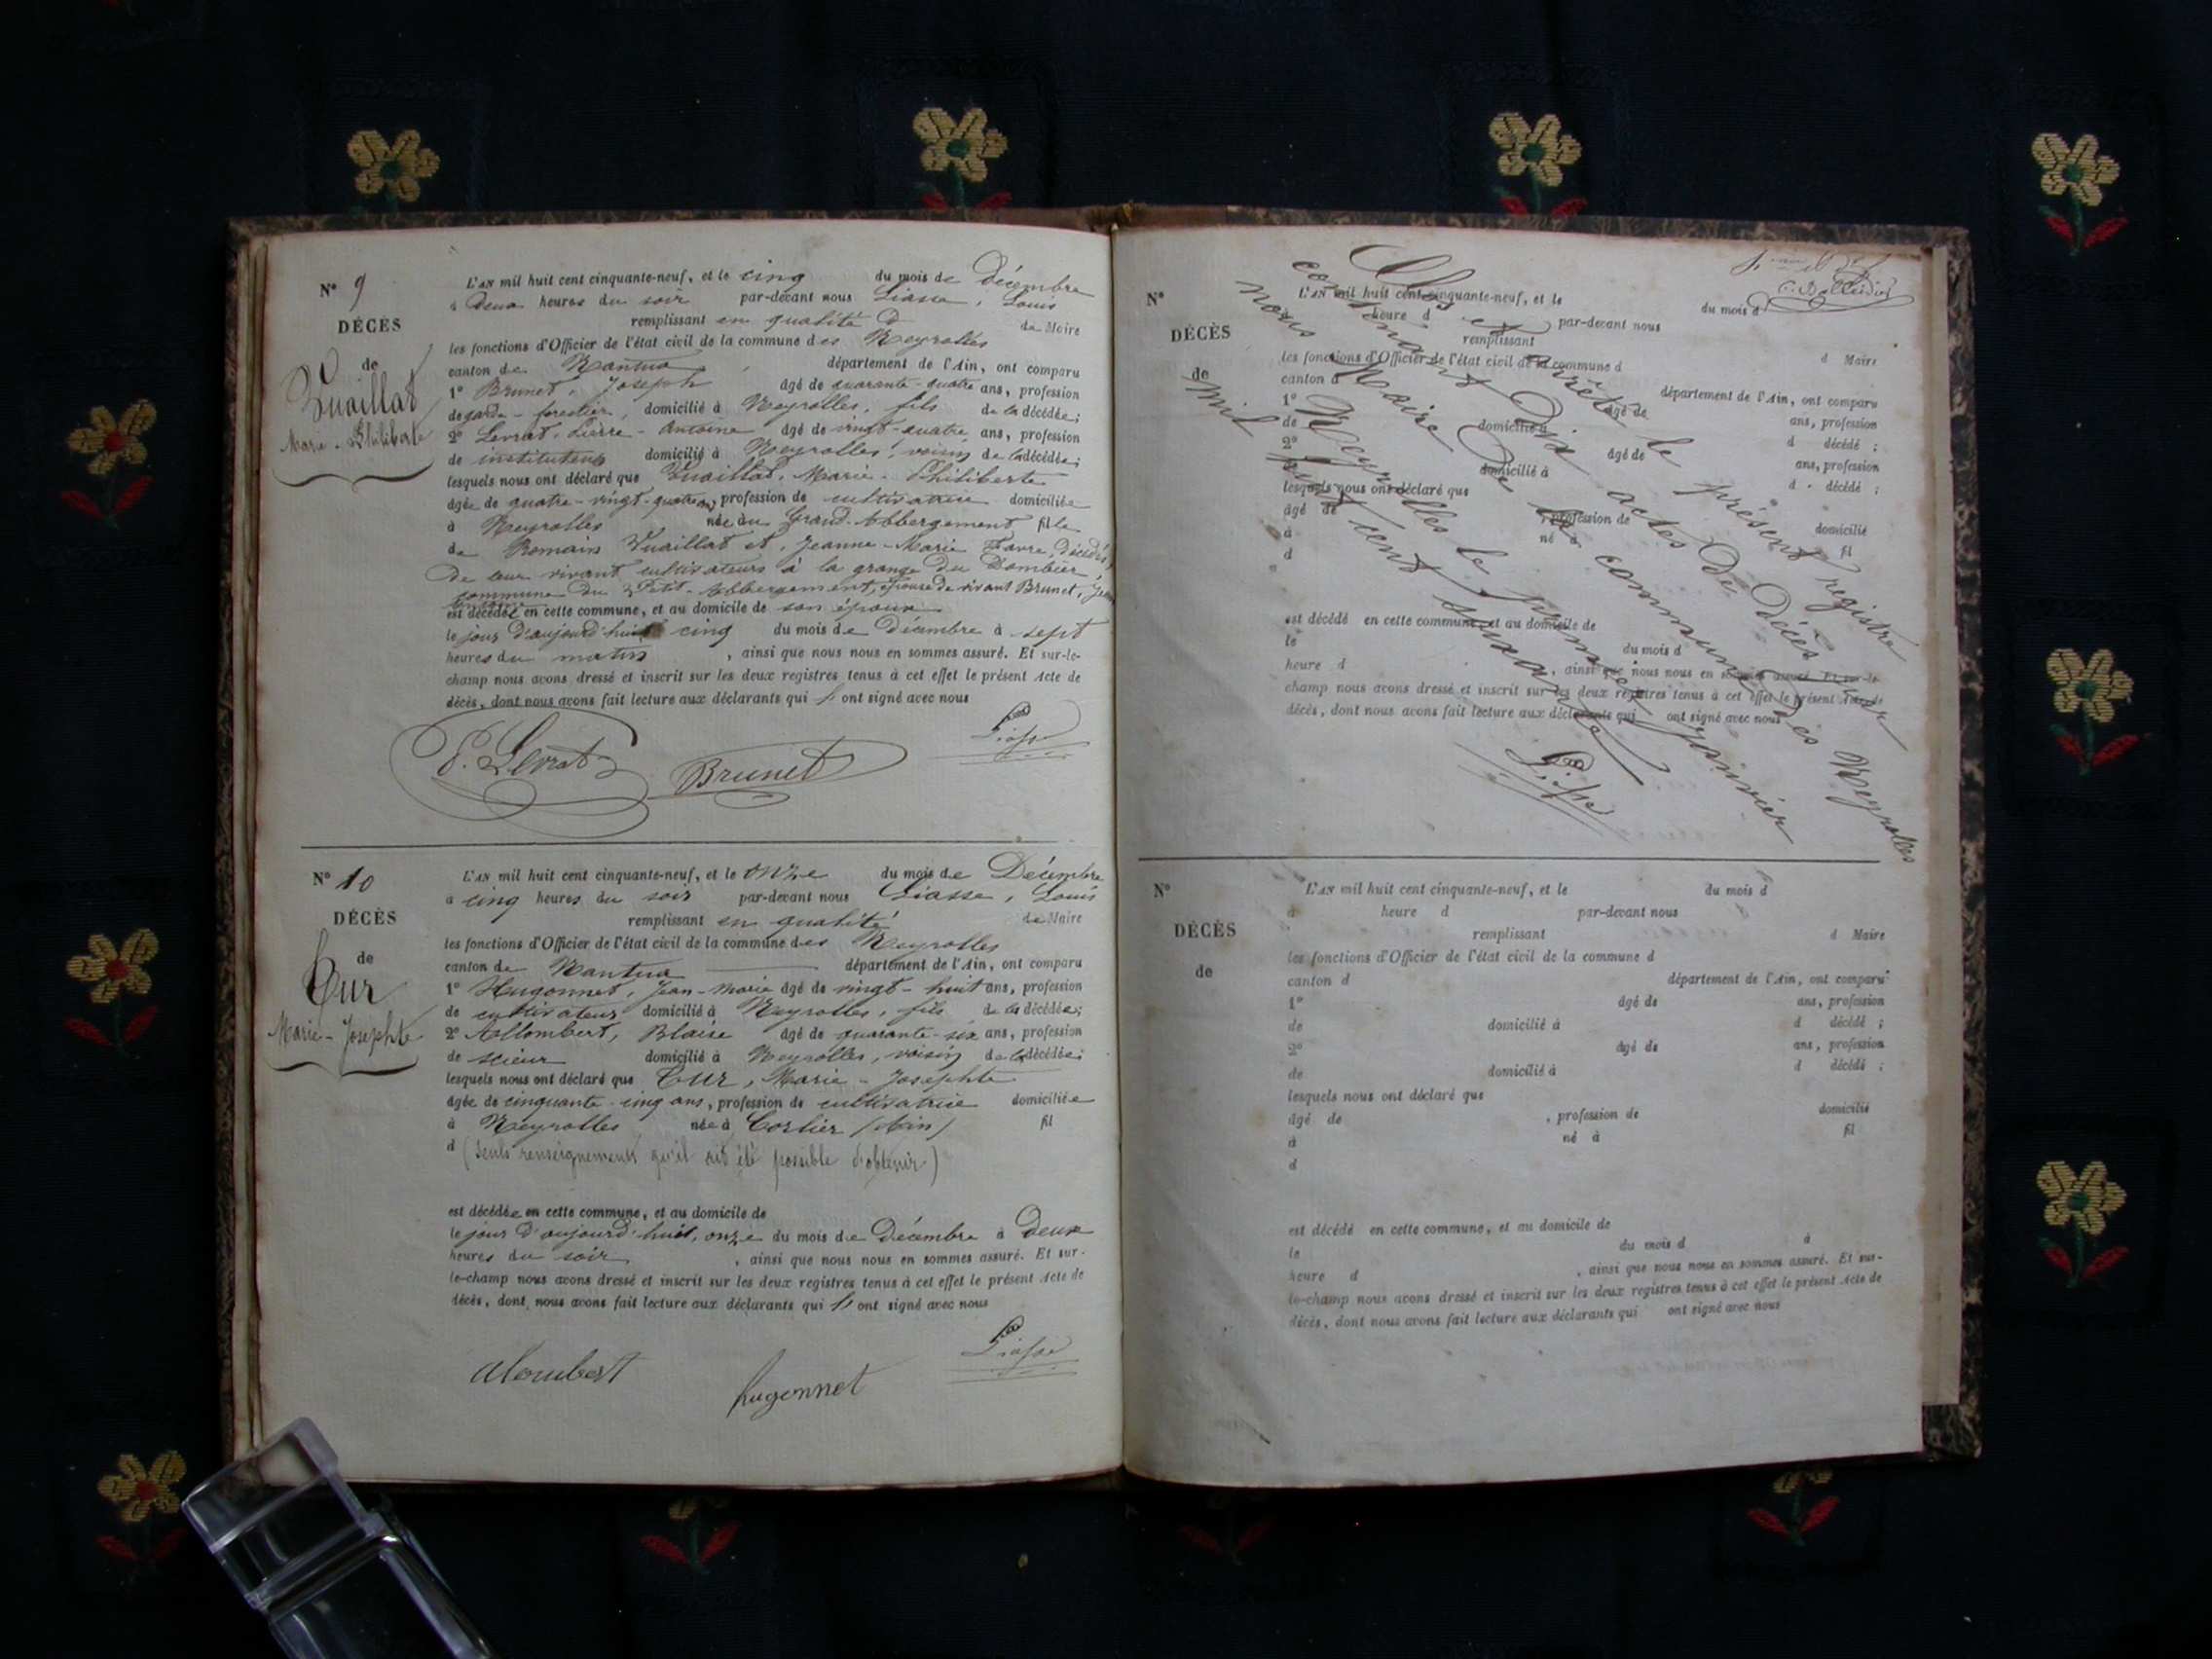 N° 9
DÉCÈS
de
Vuaillat
Marie-Philiberte
L'AN mil huit cent cinquante-neuf, et le cinq du mois de Décembre
à Deux heures du soir par-devant nous Liasse, Louis
remplissant en qualité de Maire
les fonctions d'Officier de l'état civil de la commune des Neyrolles
canton de Nantua, département de l'Ain, ont comparu
1° Brunet, Joseph âgé de quarante-quatre ans, profession
de garde-forestier, domicilié à Neyrolles, fils de la décédée;
2° Levrat, Pierre-Antoine âgé de vingt-quatre ans, profession
de instituteur domicilié à Neyrolles, voisin de la décédée;
lesquels nous ont déclaré que Vuaillat, Marie-Philiberte
âgée de quatre-vingt-quatre ans, profession de cultivatrice domiciliée
à Neyrolles née au Grand-Abbergement fille
de Romain Vuaillat et, Jeanne-Marie Favre, décédés,
de leur vivant cultivateurs à la grange du Dombier,
commune du Petit-Abbergement, épouse de vivant Brunet,
est décédée en cette commune, et au domicile de son époux
le jour d'aujourd'huit cinq du mois de Décembre à sept
heures du matin, ainsi que nous nous en sommes assuré. Et sur-le-
champ nous avons dressé et inscrit sur les deux registres tenus à cet effet le présent Acte de
décès, dont nous avons fait lecture aux déclarants qui ont signé avec nous
P. Levrat Brunet Liasse
N° 10
DÉCÈS
de
Tur
Marie-Josephte
L'AN mil huit cent cinquante-neuf, et le onze du mois de Décembre
à cinq heures du soir par-devant nous Liasse, Louis
remplissant en qualité de Maire
les fonctions d'Officier de l'état civil de la commune des Neyrolles
canton de Nantua département de l'Ain, ont comparu
1° Hugonnet, Jean-Marie âgé de vingt-huit ans, profession
de cultivateur domicilié à Neyrolles, fils de la décédée;
2° Allombert, Blaise âgé de quarante-six ans, profession
de scieur domicilié à Neyrolles, voisin de la décédée;
lesquels nous ont déclaré que Tur, Marie-Josephte
âgée de cinquante-cinq ans, profession de cultivatrice domiciliée
à Neyrolles née à Corlier (Ain) fil
d (seuls renseignements qu'il ait été possible d'obtenir)
est décédée en cette commune, et au domicile de
le jour d'aujourd'huit, onze du mois de Décembre à Deux
heures du soir, ainsi que nous nous en sommes assuré. Et sur-
le-champ nous avons dressé et inscrit sur les deux registres tenus à cet effet le présent Acte de
décès, dont nous avons fait lecture aux déclarants qui ont signé avec nous
Alombert hugonnet Liasse
Clos et arrêté le présent registre
contenant Dix actes de Décès par
nous Maire de la commune des Neyrolles
Neyrolles le premier Janvier
mil huit cent soixante
Liasse
N°
DÉCÈS
de
L'AN mil huit cent cinquante-neuf, et le du mois d
heure d par-devant nous
remplissant d Maire
les fonctions d'Officier de l'état civil de la commune d
canton d département de l'Ain, ont comparu
1° âgé de ans, profession
de domicilié à d décédé ;
2° âgé de ans, profession
domicilié à d décédé ;
lesquels nous ont déclaré que
âgé de , profession de domicilié
à né à fil
d
est décédé en cette commune, et au domicile de
le du mois d
heure d , ainsi que nous nous en sommes assuré. Et sur-le-
champ nous avons dressé et inscrit sur les deux registres tenus à cet effet le présent Acte de
décès, dont nous avons fait lecture aux déclarants qui ont signé avec nous
N°
DÉCÈS
de
L'AN mil huit cent cinquante-neuf, et le du mois d
à heure d par-devant nous
remplissant d Maire
les fonctions d'Officier de l'état civil de la commune d
canton d département de l'Ain, ont comparu
1° âgé de ans, profession
de domicilié à d décédé ;
2° âgé de ans, profession
de domicilié à d décédé ;
lesquels nous ont déclaré que
âgé de , profession de domicilié
à né à fil
d
est décédé en cette commune, et au domicile de
le du mois d à
heure d , ainsi que nous nous en sommes assuré. Et sur-
le-champ nous avons dressé et inscrit sur les deux registres tenus à cet effet le présent Acte de
décès, dont nous avons fait lecture aux déclarants qui ont signé avec nous